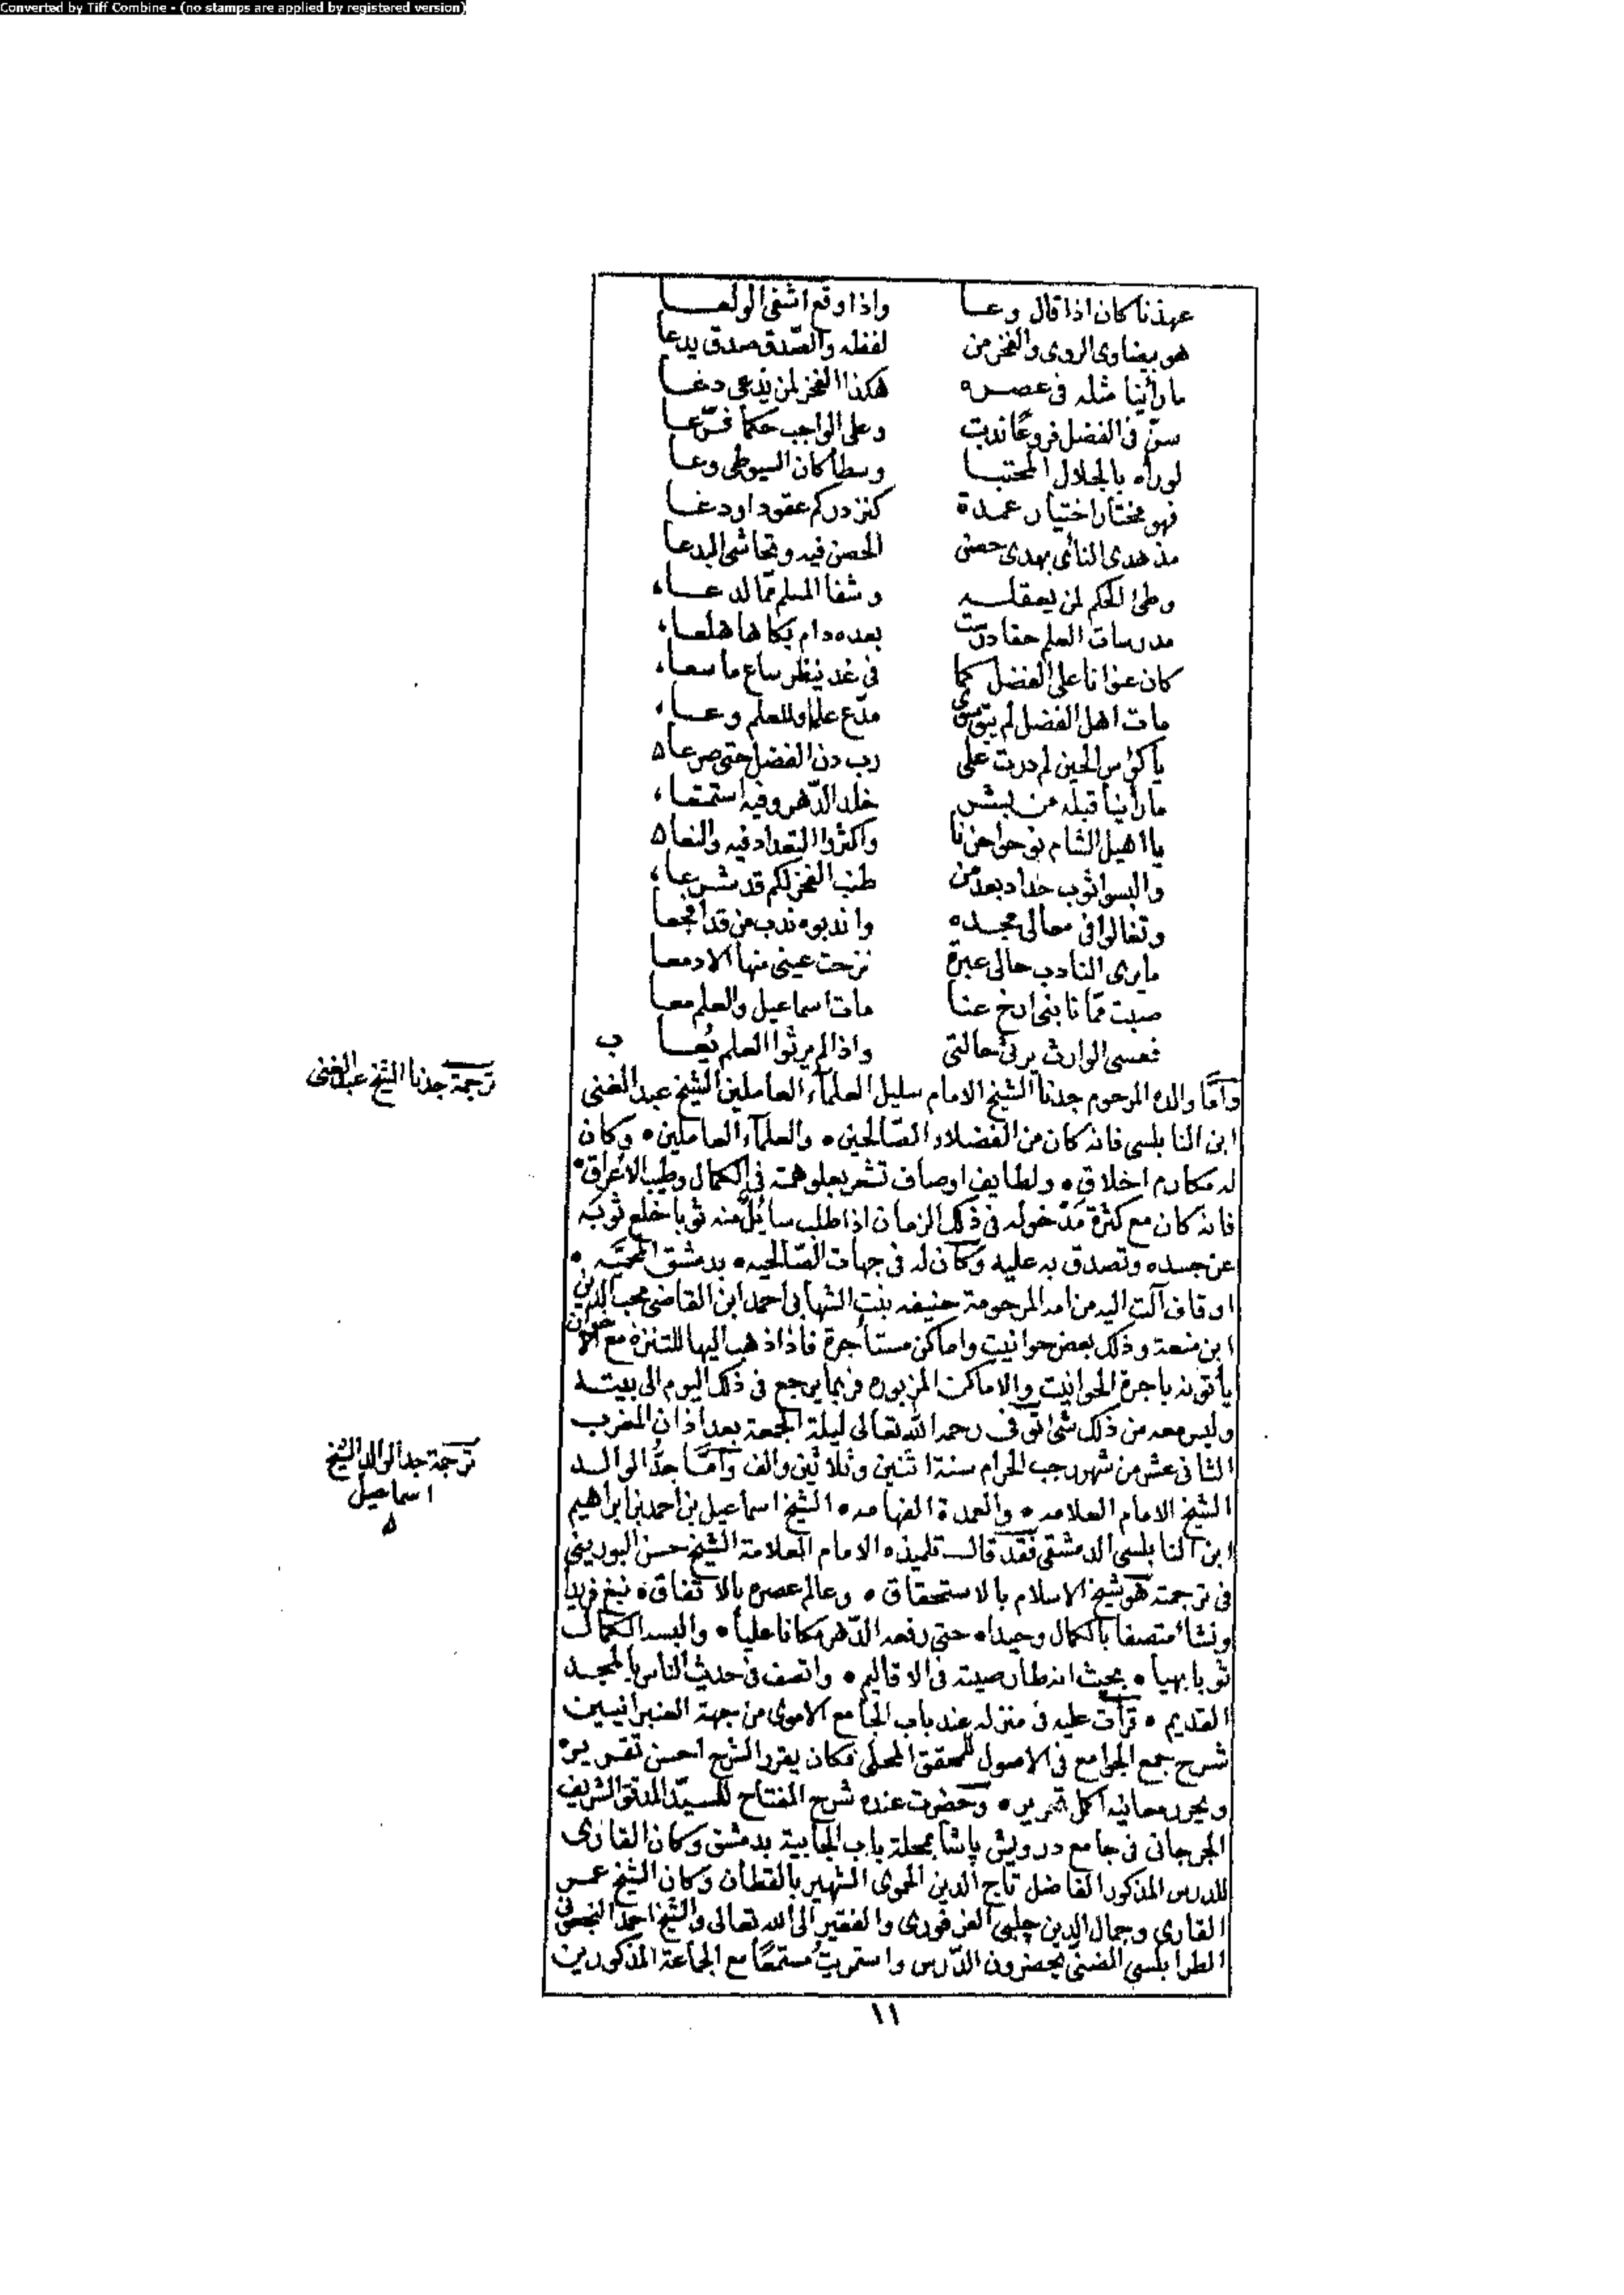 Converted by Tiff Combine - (no stamps are applied by registered version)
عهذنا كان اذا قال وعا واذا وقع اشفى الولعا
هو بيضاوى الروى والفخر من لفظه والصّدق صدق يدعا
ما رأينا مثله فى عصره هكذا الفخر لمن يدعى دعا
سنّ فى الفضل فروعًا ندبت وعلى الواجب حكما فرّعا
لو رأه بالجلال المحتبا وسطا كان السيوطى وعا
فهو مختار اختيار عمدة كنز درّ كم عقود اودعا
مذ هدى النأى بهدى حصنى الحصن فيه وتحاشى البدعا
وطئ الحكم لمن يعقله وشفا المسلم ممّا لدعا
مدرسات العلم حقا درست بعده دام بكاها هلعا
كان عنوانا على الفضل كما فى غد ينظر ساع ما سعا
مات اهل الفضل لم يبق سوى مدّع علما وللعلم وعا
يا كؤس الحين لم درت على رب دن الفضل حتى صرعا ٥
ما رأينا قبله من بشر خلد الدّهر وفيه استمتعا
يا اهيل الشام نوحوا حزنا واكثروا التعداد فيه والنعا ٥
والبسوا ثوب حداد بعد من طنب الفخر لكم قد شرعا
وتغالوا فى معالى مجده واندبوه ندب من قد افجعا
ما يرى النادب حالى عبرة نزحت عينى منها الادمعا
صبت ممّا نابنى ارخ عنا مات اسماعيل والعلم معا
فعسى الوارث يرثى حالتى واذا لم يرثوا العلم نعا ب
وأمّا والده المرحوم جدنا الشيخ الامام سليل العلمآء العاملين الشيخ عبد الغنى
ترجمة جدنا الشيخ عبد الغنى
ابن النابلسى فانه كان من الفضلاء الصّالحين • والعلمآء العاملين • وكان
له مكارم اخلاق • ولطايف اوصاف تشعر بعلو همته فى الكمال وطيب الاعراق •
فانه كان مع كثرة مدخوله فى ذلك الزمان اذا طلب سائل منه ثوبا خلع ثوبه
عن جسده وتصدق به عليه وكان له فى جهات الصّالحيه • بدمشق المحميّه •
اوقاف آلت اليه من امه المرحومة حنيفه بنت الشهابى احمد ابن القاضى محب الدين
ابن منعة وذلك بعض حوانيت واماكن مستأجرة فاذا ذهب اليها للتنزه مع الاخوان
يأتونه باجرة الحوانيت والاماكن المزبوره فربما يرجع فى ذلك اليوم الى بيته
وليس معه من ذلك شئ توفى رحمه الله تعالى ليلة الجمعة بعد اذان المغرب
الثانى عشر من شهر رجب الحرام سنة اثنين وثلاثين والف وأمّا جدّ الوالد
ترجمة جد الوالد الشيخ
اسماعيل
٥
الشيخ الامام العلامه • والعمدة الفهامه • الشيخ اسماعيل بن احمد بن ابراهيم
ابن النابلسى الدمشقى فقد قال تلميذه الامام العلامة الشيخ حسن البورينى
فى ترجمته هو شيخ الاسلام بالاستحقاق • وعالم عصره بالاتفاق • نبغ فريدا
ونشأ متصفا بالكمال وحيدا • حتى رفعه الدّهر مكانا عليا • والبسه الكمال
ثوبا بهيا • بحيث انه طار صيته فى الاقاليم • واتصف فى حديث الناس بالمجد
القديم • قرأت عليه فى منزله عند باب الجامع الاموى من جهة العنبرانيين
شرح جمع الجوامع فى الاصول للمحقق المحلى فكان يقرر الشرح احسن تقرير •
ويحرر معانيه اكمل تحرير • وحضرت عنده شرح المفتاح للسيّد المدقق الشريف
الجرجانى فى جامع درويش پاشا بمحلة باب الجابية بدمشق وكان القارى
للدرس المذكور الفاضل تاج الدين الحموى الشهير بالقطان وكان الشيخ عمر
القارى وجمال الدين چلبى الفرفورى والفقير الى الله تعالى والشيخ احمد
الطرابلسى يحضرون الدّرس واستمريت مستمعًا مع الجماعة المذكورين
١١